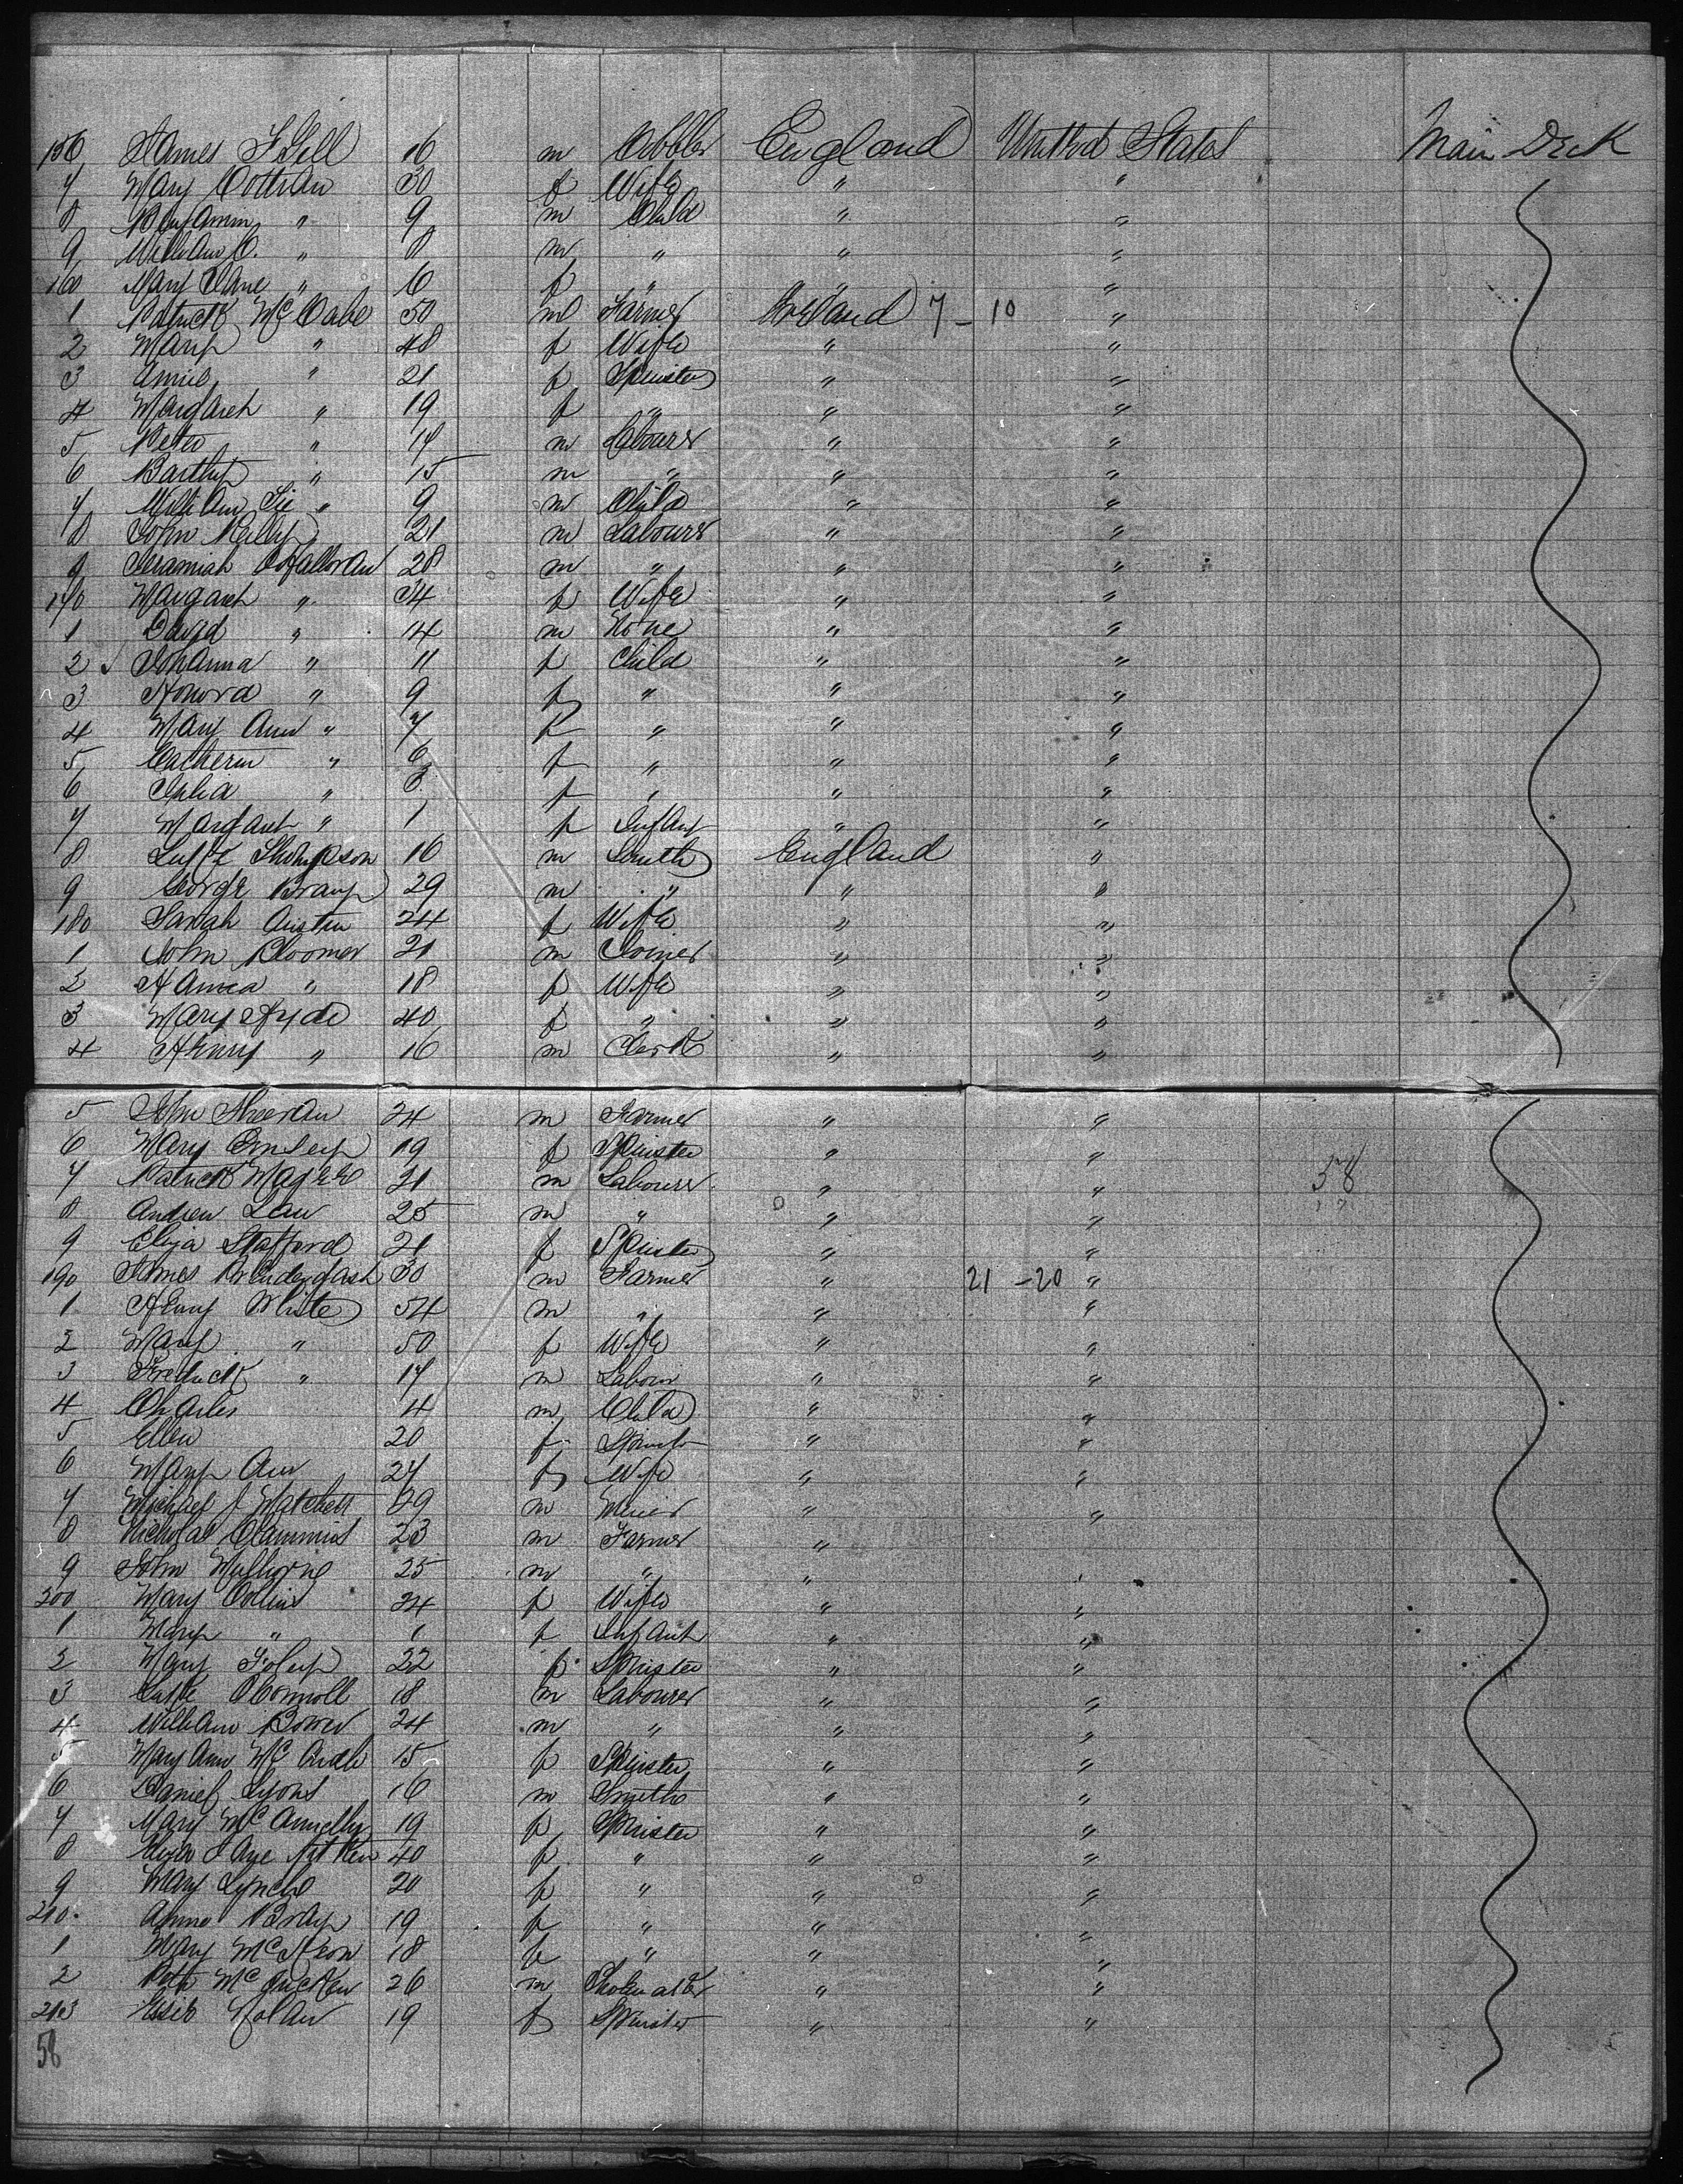 156 James Gill 16 m Cobbler England United States Main Deck
7 Mary Cottrau 30 f Wife " "
8 Benjamin " 9 m Child " "
9 William C. " 8 m " " "
160 Mary Jane " 6 f " " "
1 Patrick McCabe 50 m Farmer Ireland 7 - 10 "
2 Mary " 48 f Wife " "
3 Annie " 21 f Spinster " "
4 Margaret " 19 f " " "
5 Peter " 17 m Labourer " "
6 Bartly " 15 m " " "
7 William " 9 m Child " "
8 John Reilly 21 m Labourer " "
9 Jeramiah O'Halloran 28 m " " "
170 Margaret " 34 f Wife " "
1 David " 14 m None " "
2 Johanna " 11 f Child " "
3 Honora " 9 f " " "
4 Mary Ann " 7 f " " "
5 Catherin " 6 f " " "
6 Julia " 3 f " " "
7 Margaret " 1 f Infant " "
8 Luke Thompson 16 m Smith England "
9 George Bray 29 m " " "
180 Sarah Austin 24 f Wife " "
1 John Bloomer 21 m Joiner " "
2 Hanna " 18 f Wife " "
3 Mary Hyde 40 f " " "
4 Henry " 16 m Clerk " "
5 John Sheeran 24 m Farmer " "
6 Mary 19 f Spinster " "
7 Patrick Magee 21 m Labourer " " 38
8 Andrew Law 25 m " " "
9 Eliza Stafford 21 f Spinster " "
190 James Prendergash 30 m Farmer " 21 - 20 "
1 Henry White 54 m " " "
2 Mary " 50 f Wife " "
3 Fredrick " 17 m Labour " "
4 Charles 4 m Child " "
5 Ellen 20 f Spinster " "
6 Mary Ann 24 f Wife " "
7 Michael J Matchett 29 m Miner "
8 Nicholas Clammins 23 m Farmer "
9 John 25 m " " "
200 Mary Collins 24 f Wife " "
1 Mary " 1 f Infant " "
2 Mary Foley 22 f Spinster " "
3 Luke OConnoll 18 m Labourer " "
4 William Bower 24 m " " "
5 Mary Ann McArdle 15 f Spinster " "
6 Daniel Lyons 16 m Smith " "
7 Mary McAnnelly 19 f Spinster " "
8 Eliza Jane Aitken 40 f " " "
9 Mary Lynch 20 f " " "
210 Anne Bray 19 f " " "
1 Mary McKeon 18 f " " "
2 Peter 26 m " "
213 Essie Nolan 19 f Spinster " "
58